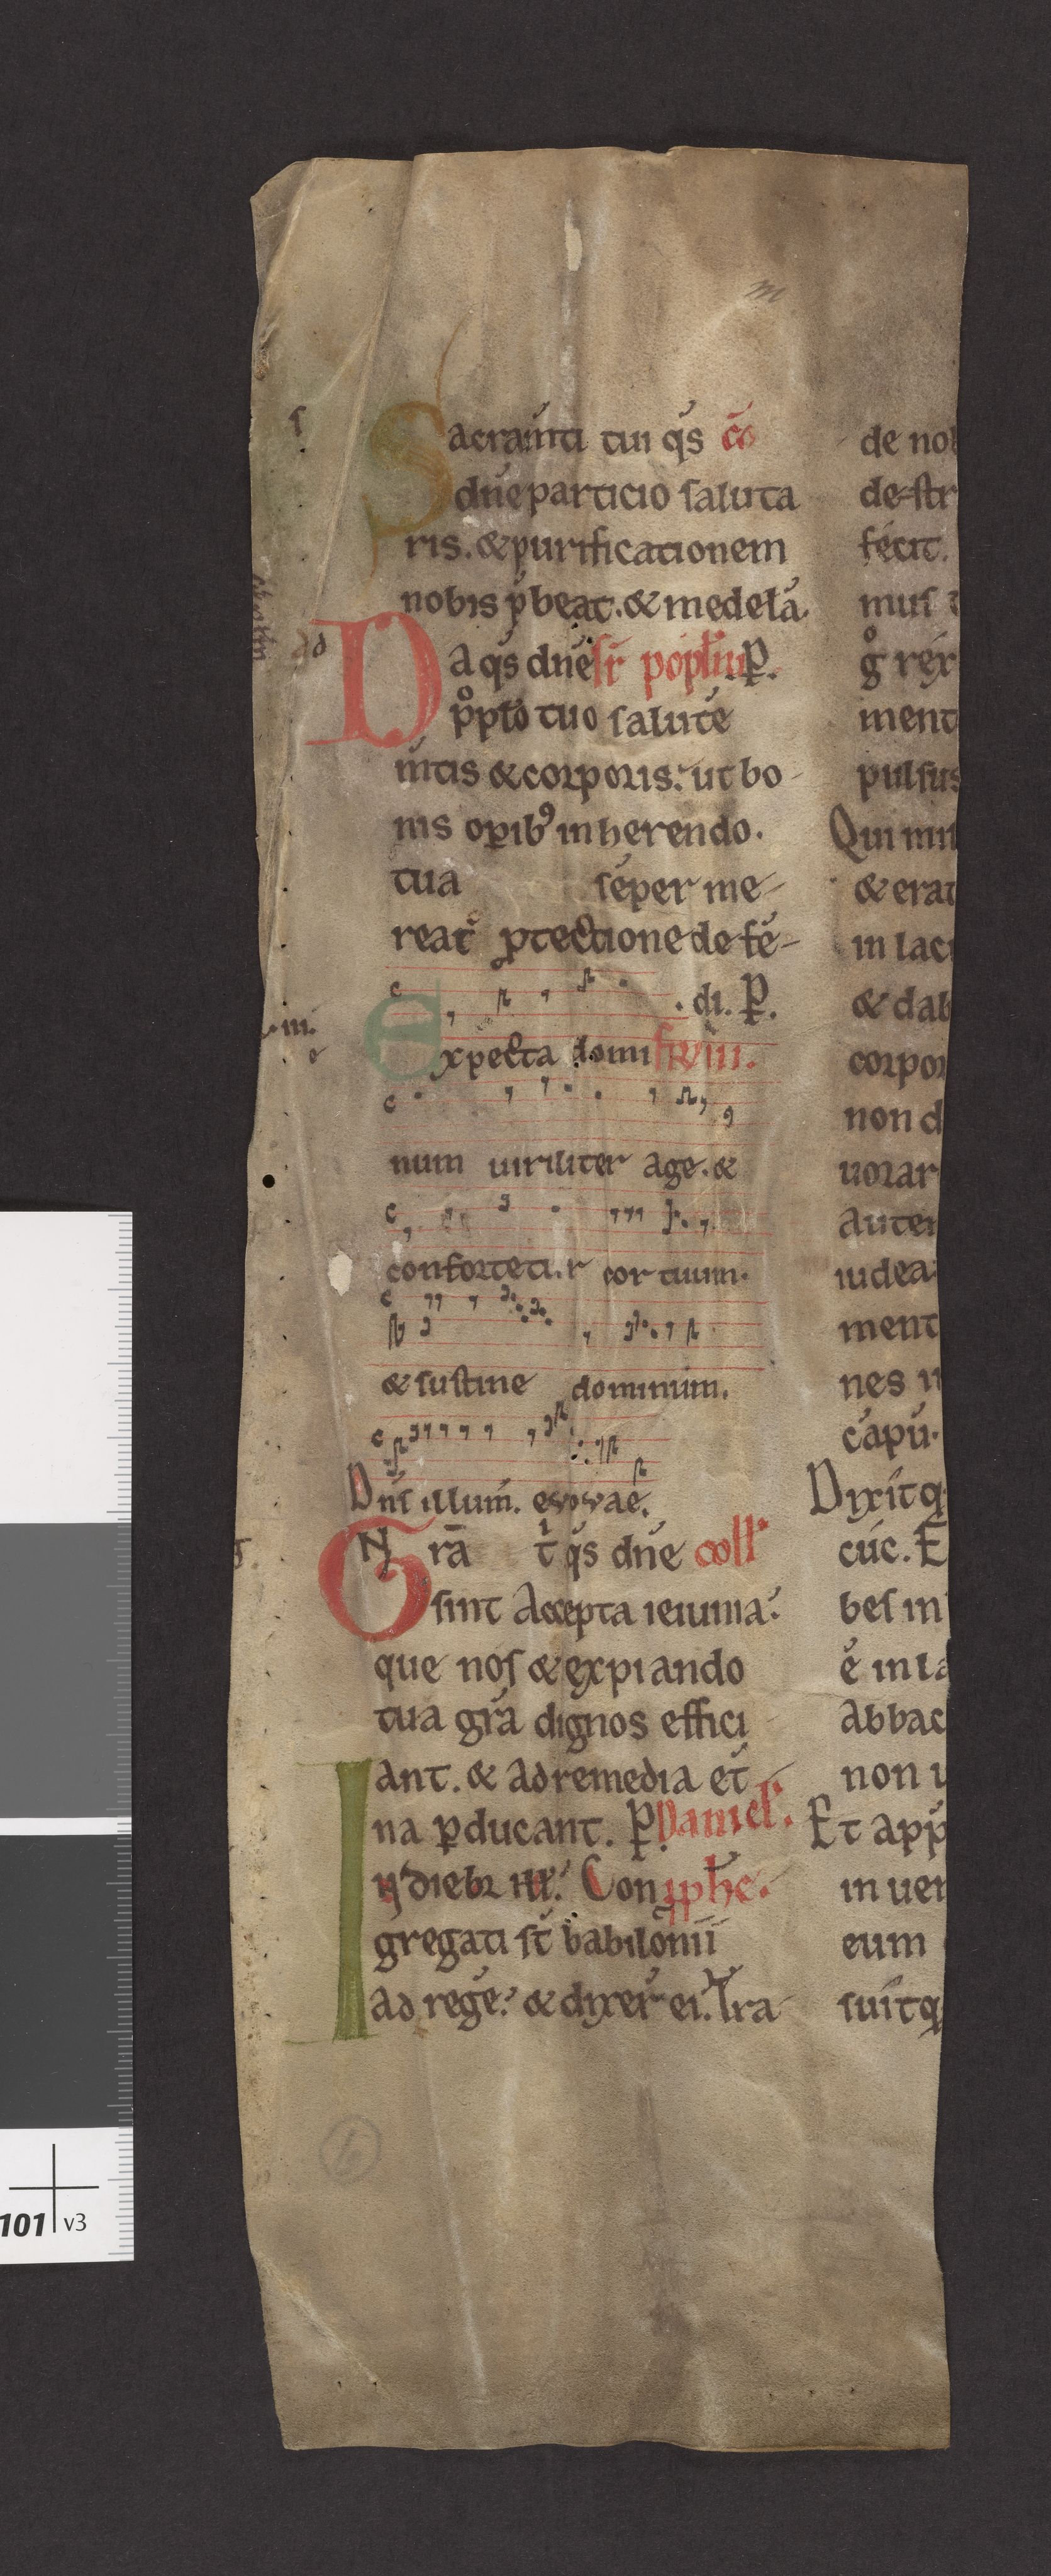 Sacram̄ti tui q̄s cō
dn̄e particio saluta
ris. & purificationem
nobis p̄beat. & medelā.
Da q̄s dn̄e sr̄ popl̄m P.
p̊plo tuo salutē
m̄tis & corporis. ut bo-
nis oꝑibꝰ inherendo.
tua sēper me-
reat᷑ ꝓtectione defē-
di. P.
Expecta domi fr̄ iii.
num uiriliter age. &
confortetur cor tuum.
& sustine dominum.
Dn̄s illum̄. evovae.
Nr̄a t̄ q̄s dn̄e coll̄
sint Accepta ieiunia.
que nos & expiando
tua gr̄a dignos effici
ant. & ad remedia et̄
na ꝑducant. P. Daniel̄.
In dieb; ill̄. Con ꝓphe.
gregati st̄ babilonii
ad regē. & dixer̄ ei. Tra
de nob
de-str
fecit.
mus
g̊ rex
ment
pulsus
Qui mis
& erat
in lac
& dab
corpor
non d
uorar
Autem
iudea
ment
nes
capu
Dixitq
cuc. E
bes in
ē in la
Abbac
non u
Et app
in uen
eum
suitq
m
.iii.
ad